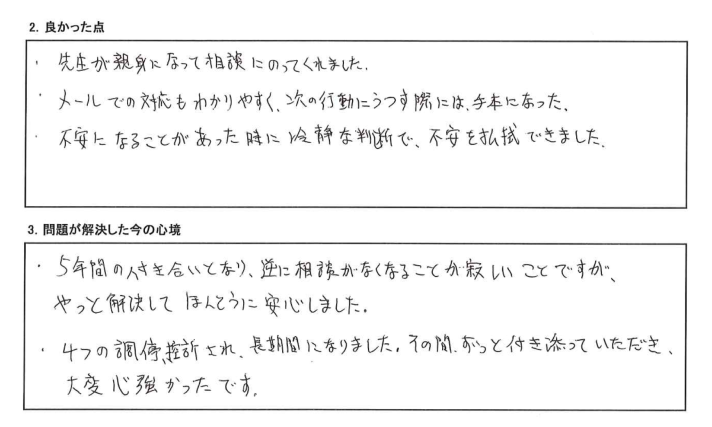 2. 良かった点
・先生が親身になって相談にのってくれました.
・メールでの対応もわかりやすく、次の行動にうつす際には、手本になった、
・不安になることがあった時に冷静な判断で、不安を払拭できました.
3. 問題が解決した今の心境
・5年間の付き合いとなり、逆に相談がなくなることが寂しいことですが、
やっと解決してほんとうに安心しました.
・4つの調停、控訴され、長期間になりました. その間、ずっと付き添っていただき、
大変心強かったです.